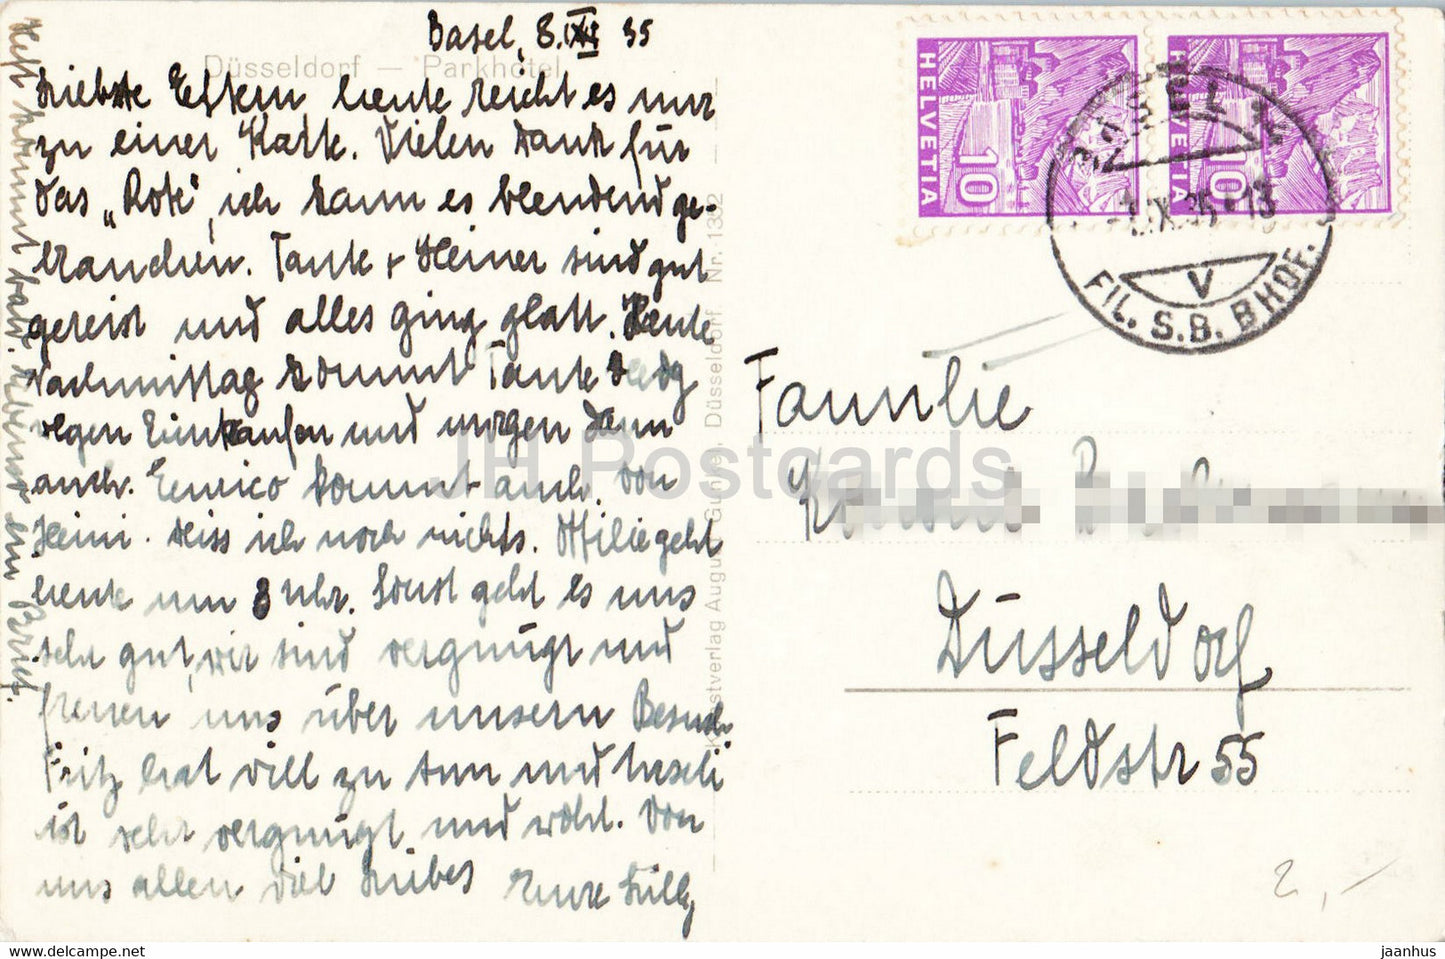 Basel, 8. XII 35
Düsseldorf — Parkhotel
Liebste Eltern heute reicht es nur
zu einer Karte. Vielen Dank für
das „Rote", ich kann es blendend ge-
brauchen. Tante + Heiner sind gut
gereist und alles ging glatt. Heute
Nachmittag kommt Tante
wegen Einkaufen und morgen dann
auch. Enrico kommt auch. Von
Heini weiss ich noch nichts. Ottilie geht
heute um 8 Uhr. Sonst geht es uns
sehr gut, wir sind vergnügt und
freuen uns über unsern Besuch
Fritz hat viel zu tun und Luseli
ist sehr vergnügt und wohl. Von
uns allen viel Liebes Eure Lilly
Heft kommt bald. Ebenso ein Brief.
Kunstverlag August Gunkel, Düsseldorf. Nr. 1332
HELVETIA
10
HELVETIA
10
BASEL 2
IX. 35 - 13
V
FIL. S.B. BHOF.
Familie
Düsseldorf
Feldstr 55
2,-
JH Postcards
www.delcampe.net
jaanhus